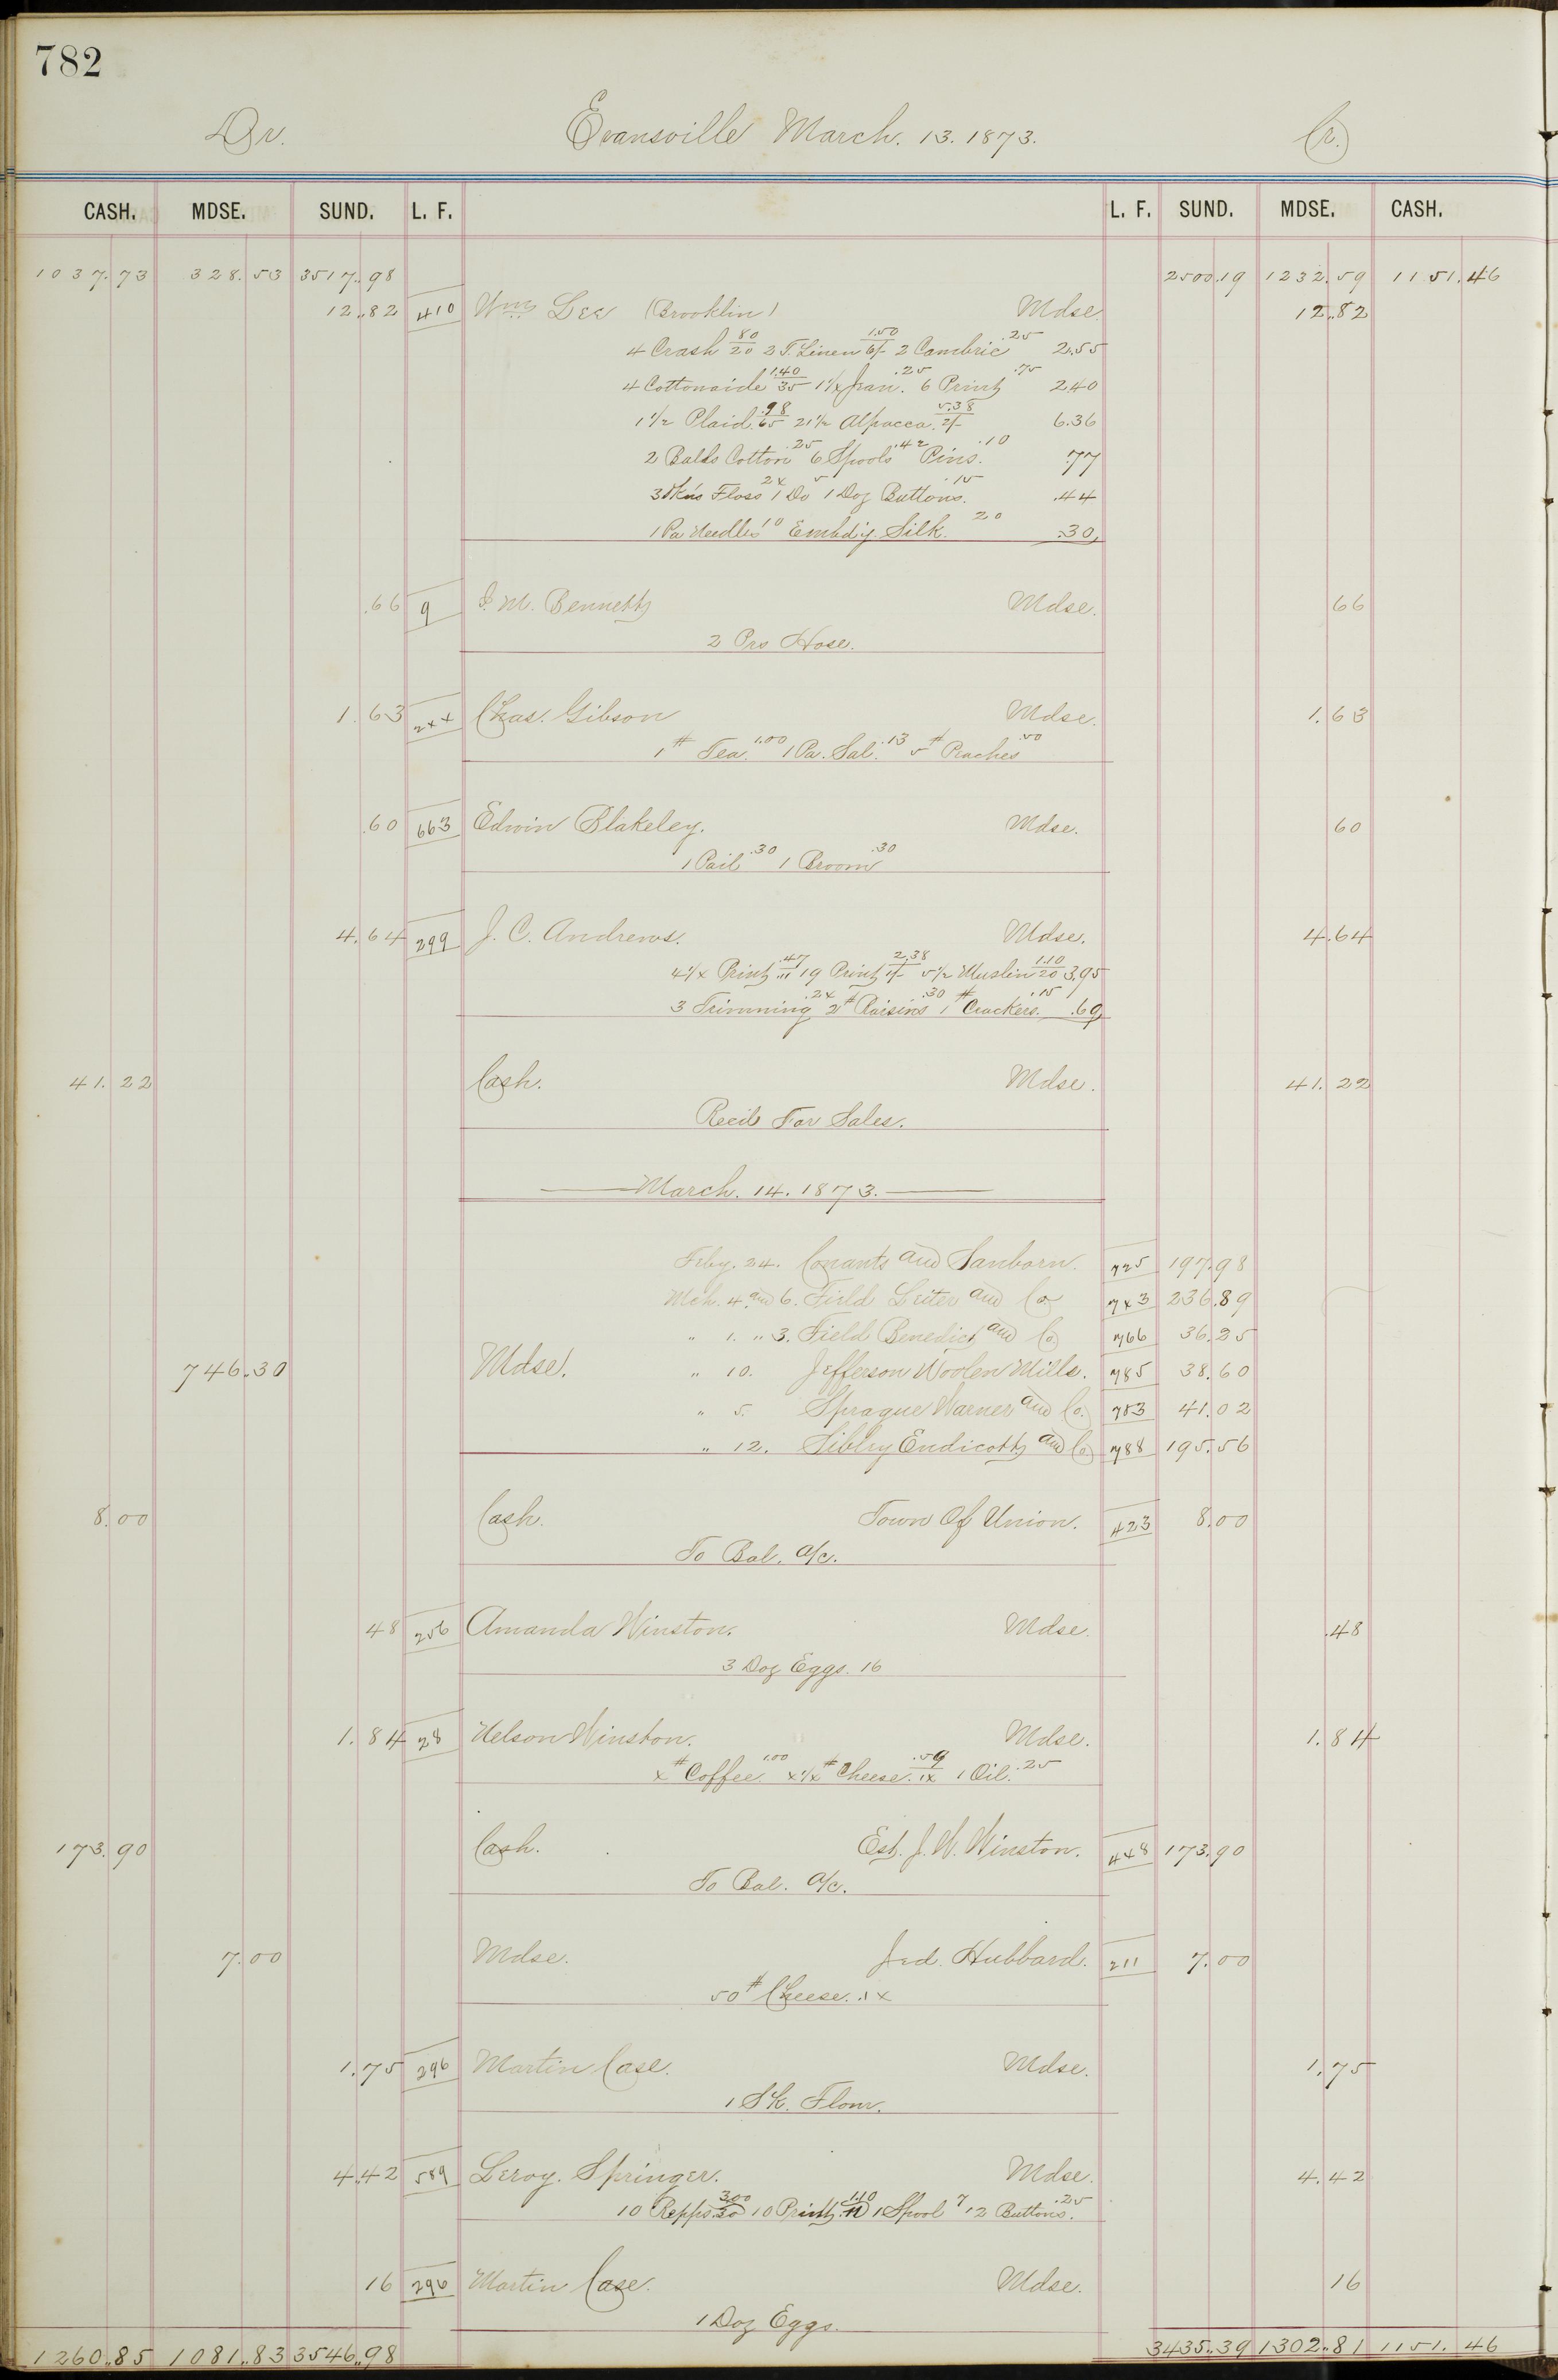 782
Dr. Evansville March. 13. 1873. Cr.
CASH. MDSE. SUND. L. F. L. F. SUND. MDSE. CASH.
1037.73 328.53 3517.98 2500.19 1232.59 1151.46
12.82 410 Wm Lee (Brooklin) Mdse. 12.82
4 Crash 80/20 2 T. Linen 1.50/6/- 2 Cambric .25 2.55
4 Cottonaide 1.40/35 1 1/4 Jean. .25 6 Print .75 2.40
1 1/2 Plaid. .98/65 21 1/2 Alpacca. 5.38/2/- 6.36
2 Balls Cotton .25 6 Spools .42 Pins. .10 .77
3 Skns Floss 24 1 Do 5 1 Doz Buttons. .15 .44
1 Pa Needles 10 Embd'g. Silk. 20 .30
.66 9 I. M. Bennett Mdse. 66
2 Prs Hose.
1.63 244 Chas. Gibson Mdse. 1.63
1 # Tea. 1.00 1 Pa. Sal. .13 5 # Peaches .50
.60 663 Edwin Blakeley. Mdse. 60
1 Pail .30 1 Broom .30
4.64 299 J. C. Andrews. Mdse. 4.64
4 1/4 Print .47/.11 19 Print 2.38/1/- 5 1/2 Muslin 1.10/20 3.95
3 Trimming .24 2 # Raisins .30 1 # Crackers. .15 .69
41.22 Cash. Mdse. 41.22
Recd For Sales.
March. 14. 1873.
Feby. 24. Conants and Sanborn. 725 197.98
Mch. 4 and 6. Field Leiter and Co 743 236.89
" 1. " 3. Field Benedict and Co 766 36.25
746.30 Mdse. " 10. Jefferson Woolen Mills. 785 38.60
" 5. Sprague Warner and Co. 783 41.02
" 12. Sibley Endicott and Co 788 195.56
8.00 Cash. Town Of Union. 423 8.00
To Bal. a/c.
48 256 Amanda Winston. Mdse. .48
3 Doz Eggs. 16
1.84 28 Nelson Winston. Mdse. 1.84
4 # Coffee 1.00 4 1/4 # Cheese. .59/14 1 Oil. .25
173.90 Cash. Est. J. W. Winston. 448 173.90
To Bal. a/c.
7.00 Mdse. Jed. Hubbard. 211 7.00
50 # Cheese. .14
1.75 296 Martin Case. Mdse. 1.75
1 Sk. Flour.
4.42 589 Leroy. Springer. Mdse. 4.42
10 Repps 3.00/30 10 Print 1.10/11 1 Spool 7 12 Buttons. .25
16 296 Martin Case. Mdse. 16
1 Doz Eggs.
1260.85 1081.83 3546.98 3435.39 1302.81 1151.46